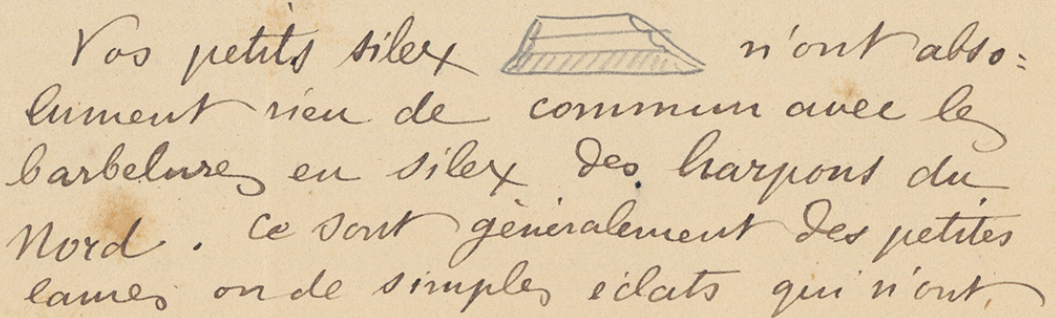 Vos petits silex n'ont abso=
lument rien de commun avec les
barbelures en silex des harpons du
Nord. Ce sont généralement des petites
lames ou de simples éclats qui n'ont